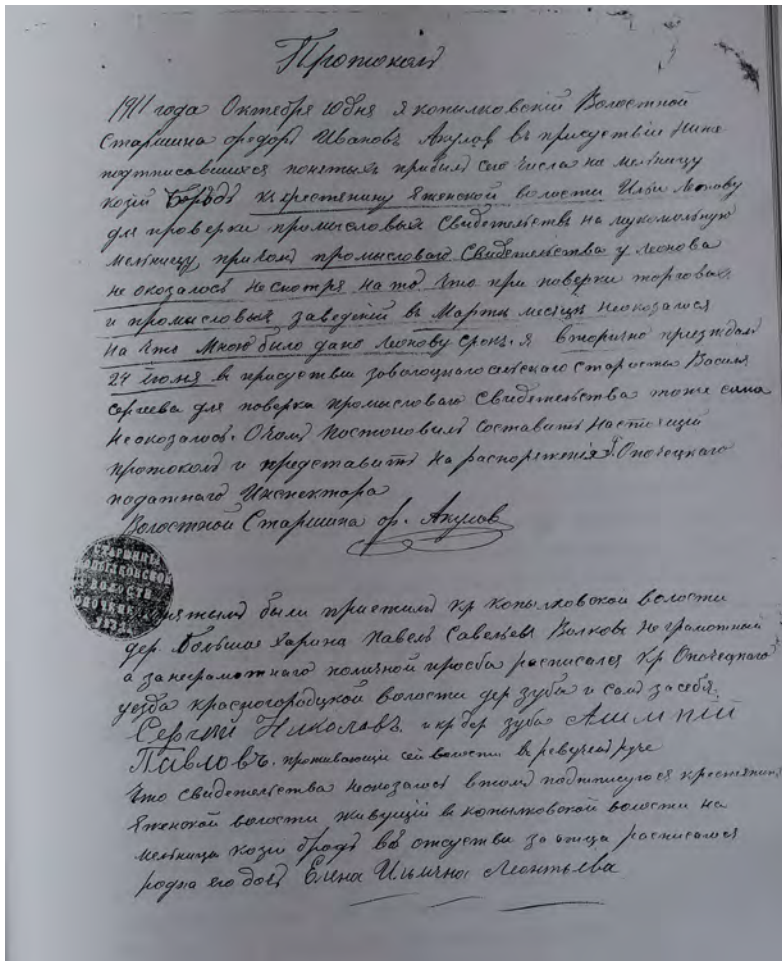 Протоколъ
1911 года Октября 10 дня я копылковскій Волостной
Старшина федоръ Ивановъ Акулов въ присуствіи Ниже
подтписавшихся понятыхъ прибылъ сего числа на мельницу
козій бродъ къ крестянину Яженской волости Ильи Леонову
для проверки промысловыхъ Свидетельствъ на мукомольную
мельницу, промысловаго Свидетельства у Леонова
не оказалось Несмотря на то что при поверки торговых
и промысловых заведеній въ Марте месяце неоказалося
На что Мною было дано Леонову срокъ. я вторично призжал
24 іюня в присуствіи заволоцкаго селскаго старосты Василя
Сергеева для поверка промысловаго Свидетельства тоже
неоказалось. О чомъ Постоновилъ составить Настоящій
протоколъ и представить на распоряженія Г. Опочецкаго
податнаго Инспектора
Волостной Старшина ф. Акулов
СТАРШИНА
КОПЫЛКОВСКОЙ
ВОЛОСТИ
ОПОЧЕЦК. У.
были кр копылковской волости
дер Большое Харина Павелъ Савельев Волковъ Неграмотный
а занеграмотнаго поличной прозба росписался Кр Опочецкаго
уезда красногородцкой волости дер зуба и сам за себя.
Сергѣй Николаевъ. и кр дер зуба
Павловъ. проживающи сей волости в
Что свидетельства неоказалось втомъ подписуюся крестянинъ
Яженской волости живущій в копылковской волости на
мельница козій бродъ въ отсуствіи за отца росписалася
родна его доч Елена Ильична Леонтьева